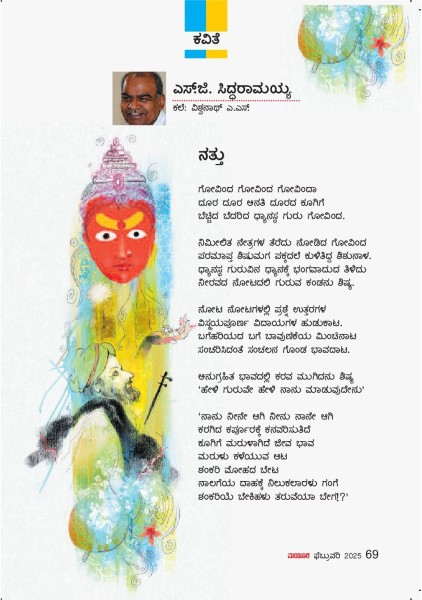 ಕವಿತೆ
ಎಸ್‌.ಜಿ. ಸಿದ್ಧರಾಮಯ್ಯ
ಕಲೆ: ವಿಶ್ವನಾಥ್ ಎ.ಎಸ್.
ನತ್ತು
ಗೋವಿಂದ ಗೋವಿಂದ ಗೋವಿಂದಾ
ದೂರ ದೂರ ಅನತಿ ದೂರದ ಕೂಗಿಗೆ
ಬೆಚ್ಚಿದ ಬೆದರಿದ ಧ್ಯಾನಸ್ಥ ಗುರು ಗೋವಿಂದ.
ನಿಮೀಲಿತ ನೇತ್ರಗಳ ತೆರೆದು ನೋಡಿದ ಗೋವಿಂದ
ಪರಮಾಪ್ತ ಶಿಷುಮಗ ಪಕ್ಕದಲೆ ಕುಳಿತಿದ್ದ ಶಿಶುನಾಳ.
ಧ್ಯಾನಸ್ಥ ಗುರುವಿನ ಧ್ಯಾನಕ್ಕೆ ಭಂಗವಾದುದ ತಿಳಿದು
ನೀರವದ ನೋಟದಲಿ ಗುರುವ ಕಂಡನು ಶಿಷ್ಯ.
ನೋಟ ನೋಟಗಳಲ್ಲಿ ಪ್ರಶ್ನೆ ಉತ್ತರಗಳ
ವಿಸ್ಮಯಪೂರ್ಣ ವಿದಾಯಗಳ ಹುಡುಕಾಟ.
ಬಗೆಹರಿಯದ ಬಗೆ ಬಾವುಣಿಕೆಯ ಮಿಂಚಿನಾಟ
ಸಂಚರಿಸಿದಂತೆ ಸಂಚಲನ ಗೊಂಡ ಭಾವದಾಟ.
ಅನುಗ್ರಹಿತ ಭಾವದಲ್ಲಿ ಕರವ ಮುಗಿದನು ಶಿಷ್ಯ
‘ಹೇಳಿ ಗುರುವೇ ಹೇಳಿ ನಾನು ಮಾಡುವುದೇನು’
‘ನಾನು ನೀನೇ ಆಗಿ ನೀನು ನಾನೇ ಆಗಿ
ಕರಗಿದ ಕರ್ಪೂರಕ್ಕೆ ಕನವರಿಸುತಿದೆ
ಕೂಗಿಗೆ ಮರುಳಾಗಿದೆ ಜೀವ ಭಾವ
ಮರುಳು ಕಳೆಯುವ ಆಟ
ಶಂಕರಿ ಮೋಹದ ಬೇಟ
ನಾಲಗೆಯ ದಾಹಕ್ಕೆ ನಿಲುಕಲಾರಳು ಗಂಗೆ
ಶಂಕರಿಯೆ ಬೇಕಿಹಳು ತರುವೆಯಾ ಬೇಗ!?’
ಮಯೂರ ಫೆಬ್ರುವರಿ 2025 69